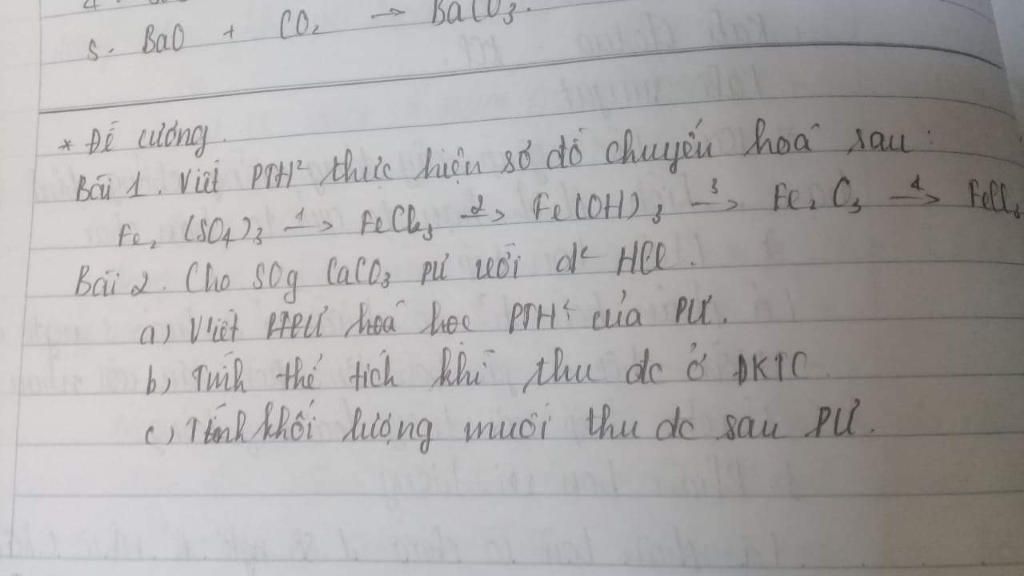 5. BaO + CO₂ → BaCO₃.
* Đề cương.
Bài 1. Viết PTH² thực hiện sơ đồ chuyển hoá sau:
Fe₂(SO₄)₃ —1→ FeCl₃ —2→ Fe(OH)₃ —3→ Fe₂O₃ —4→ FeCl₃
Bài 2. Cho 50g CaCO₃ pư với d² HCl.
a) Viết PTPƯ hoá học PTH² của PƯ.
b) Tính thể tích khí thu dc ở ĐKTC
c) Tính khối lượng muối thu dc sau PƯ.